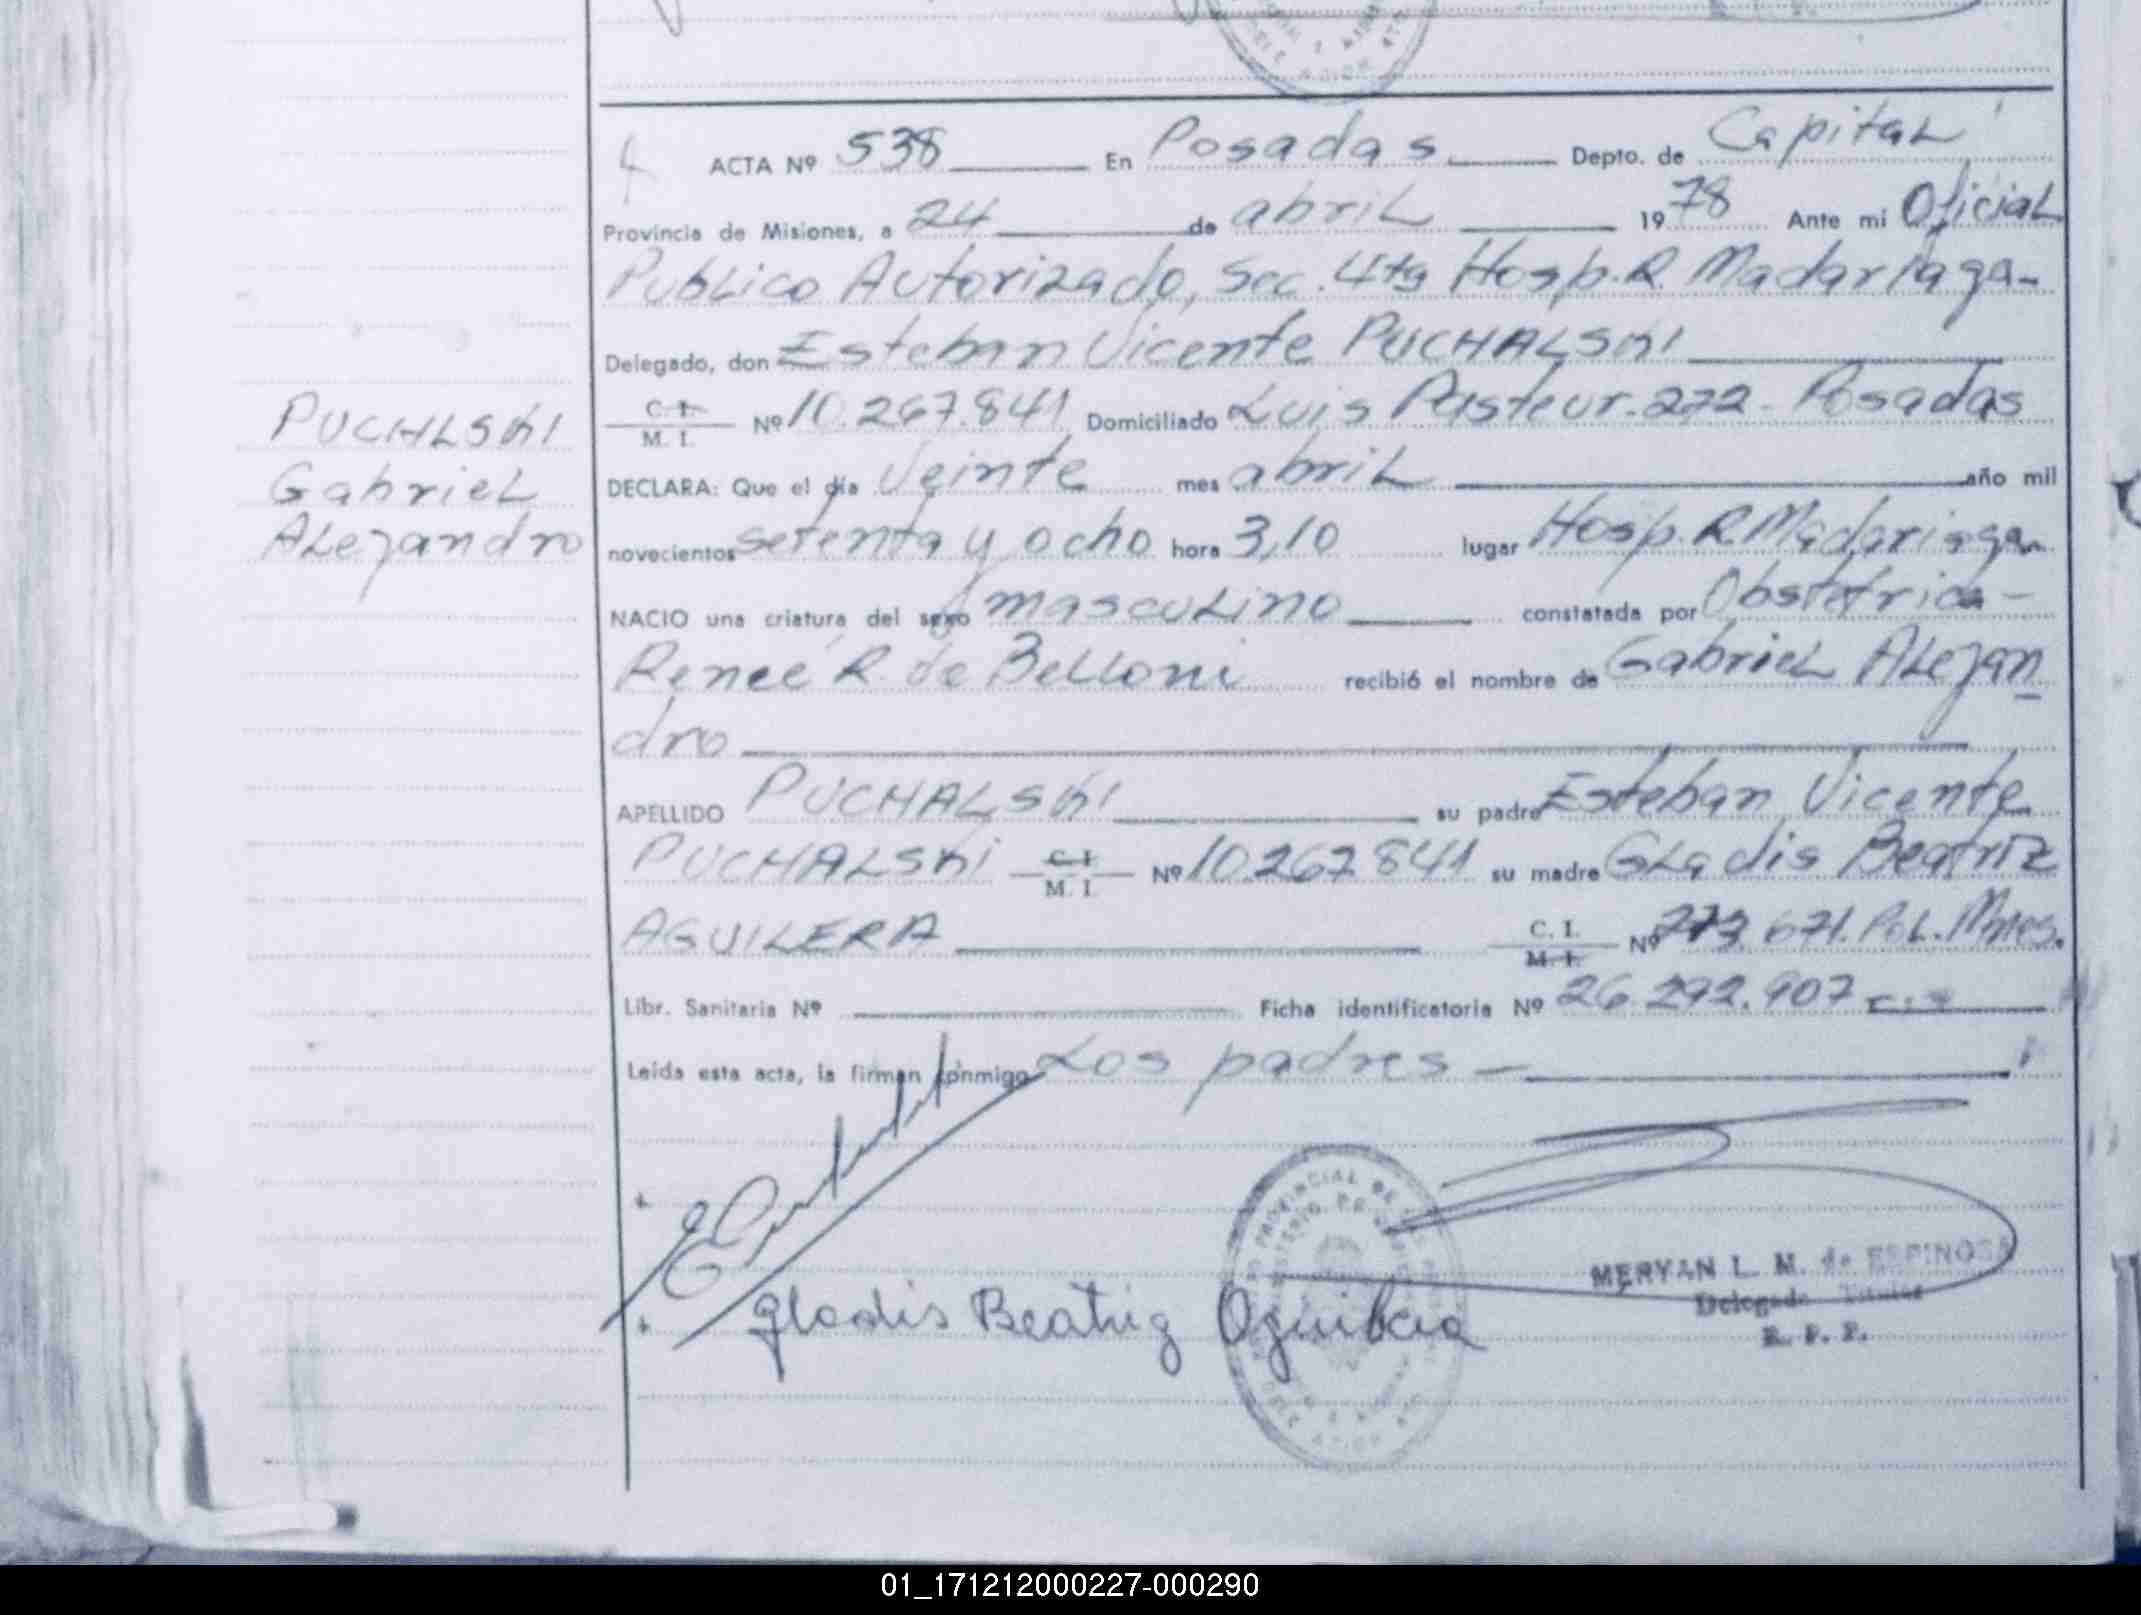 ACTA Nº 538 En Posadas Depto. de Capital
Provincia de Misiones, a 24 de abril 1978 Ante mi Oficial
Publico Autorizado, Sec. 4ta Hosp. R. Madariaga-
Delegado, don Esteban Vicente PUCHALSKI
C. I. M. I. Nº 10.267.841 Domiciliado Luis Pasteur. 272 - Posadas
PUCHLSKI
Gabriel
Alejandro
DECLARA: Que el día Veinte mes abril año mil
novecientos setenta y ocho hora 3,10 lugar Hosp. R. Madariaga
NACIO una criatura del sexo masculino constatada por Obstetrica -
Renee R. de Belloni recibió el nombre de Gabriel Alejan
dro
APELLIDO PUCHALSKI su padre Esteban Vicente
PUCHALSKI C. I. M. I. Nº 10.267.841 su madre Gladis Beatriz
AGUILERA C. I. M. I. Nº 273.671. Pol. Mnes.
Libr. Sanitaria Nº Ficha identificatoria Nº 26.292.907
Leída esta acta, la firman conmigo Los padres -
Gladis Beatriz
MERYAN L. M. de ESPINOSA
Delegada Titular
R. P. P.
01_171212000227-000290